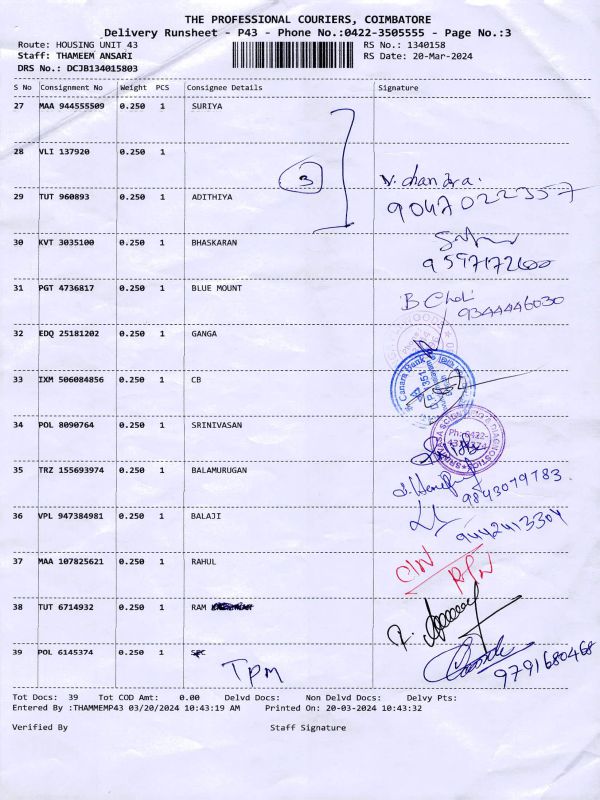 THE PROFESSIONAL COURIERS, COIMBATORE
Delivery Runsheet - P43 - Phone No.:0422-3505555 - Page No.:3
Route: HOUSING UNIT 43 RS No.: 1340158
Staff: THAMEEM ANSARI RS Date: 20-Mar-2024
DRS No.: DCJB134015803
S No Consignment No Weight PCS Consignee Details Signature
27 MAA 944555509 0.250 1 SURIYA
28 VLI 137920 0.250 1
3
N. chandra.
29 TUT 960893 0.250 1 ADITHIYA
9047022357
30 KVT 3035100 0.250 1 BHASKARAN
9597172600
31 PGT 4736817 0.250 1 BLUE MOUNT
9344446030
32 EDQ 25181202 0.250 1 GANGA
33 IXM 506084856 0.250 1 CB
Canara Bank
34 POL 8090764 0.250 1 SRINIVASAN
Ph: 0422-
35 TRZ 155693974 0.250 1 BALAMURUGAN
9843079783
36 VPL 947384981 0.250 1 BALAJI
9442413304
37 MAA 107825621 0.250 1 RAHUL
38 TUT 6714932 0.250 1 RAM
39 POL 6145374 0.250 1
TPM
9791680468
Tot Docs: 39 Tot COD Amt: 0.00 Delvd Docs: Non Delvd Docs: Delvy Pts:
Entered By :THAMMEMP43 03/20/2024 10:43:19 AM Printed On: 20-03-2024 10:43:32
Verified By Staff Signature